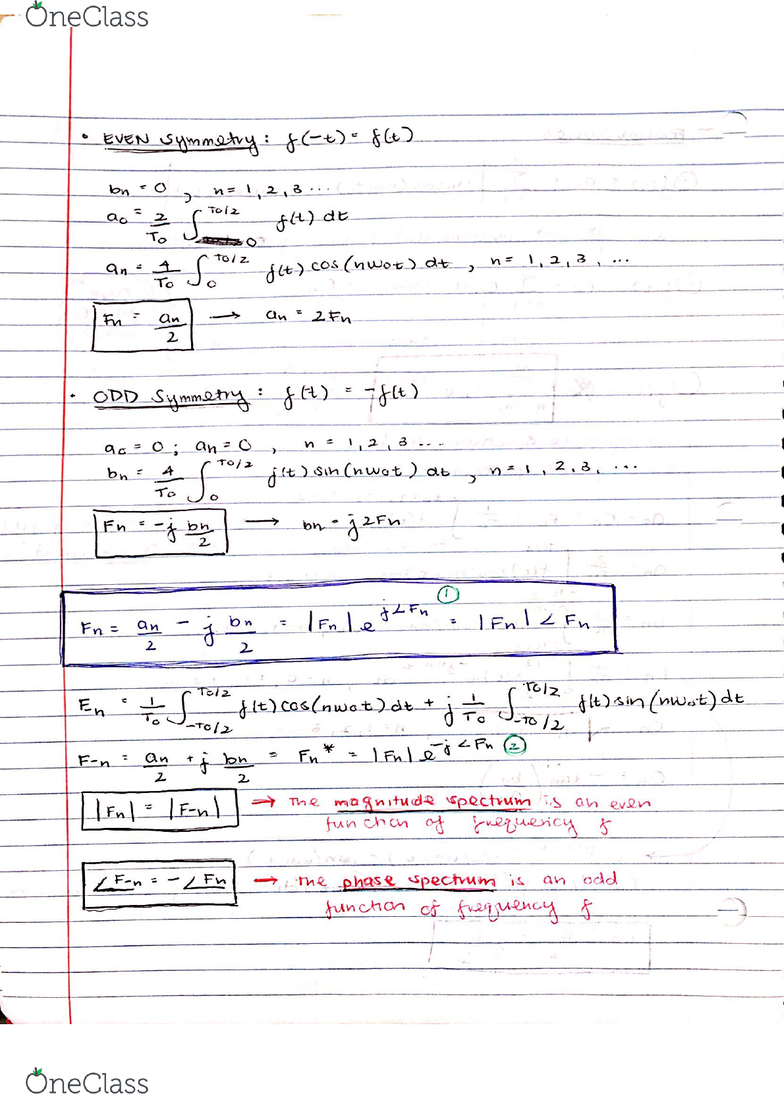 OneClass
• EVEN Symmetry : f(-t) = f(t)
bn = 0 , n = 1, 2, 3 ...
a0 = 2/T0 ∫_0^{T0/2} f(t) dt
an = 4/T0 ∫_0^{T0/2} f(t) cos(nw0t) dt , n = 1, 2, 3, ...
Fn = an/2 → an = 2Fn
• ODD Symmetry : f(t) = -f(t)
a0 = 0 ; an = 0 , n = 1, 2, 3 ...
bn = 4/T0 ∫_0^{T0/2} f(t) sin(nw0t) dt , n = 1, 2, 3, ...
Fn = -j bn/2 → bn = j2Fn
Fn = an/2 - j bn/2 = |Fn| e^{j∠Fn} ① = |Fn| ∠ Fn
F-n = 1/T0 ∫_{-T0/2}^{T0/2} f(t) cos(nw0t) dt + j 1/T0 ∫_{-T0/2}^{T0/2} f(t) sin(nw0t) dt
F-n = an/2 + j bn/2 = Fn* = |Fn| e^{-j∠Fn} ②
|Fn| = |F-n| → The magnitude spectrum is an even
function of frequency f
∠F-n = -∠Fn → The phase spectrum is an odd
function of frequency f
OneClass